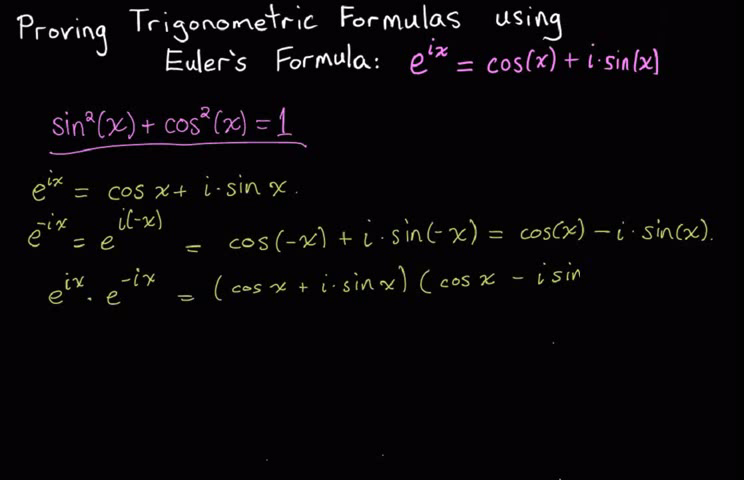 Proving Trigonometric Formulas using
Euler's Formula: e^{ix} = cos(x) + i·sin(x)
sin²(x) + cos²(x) = 1
e^{ix} = cos x + i·sin x.
e^{-ix} = e^{i(-x)} = cos(-x) + i·sin(-x) = cos(x) - i·sin(x).
e^{ix}·e^{-ix} = (cos x + i·sin x)(cos x - i sin